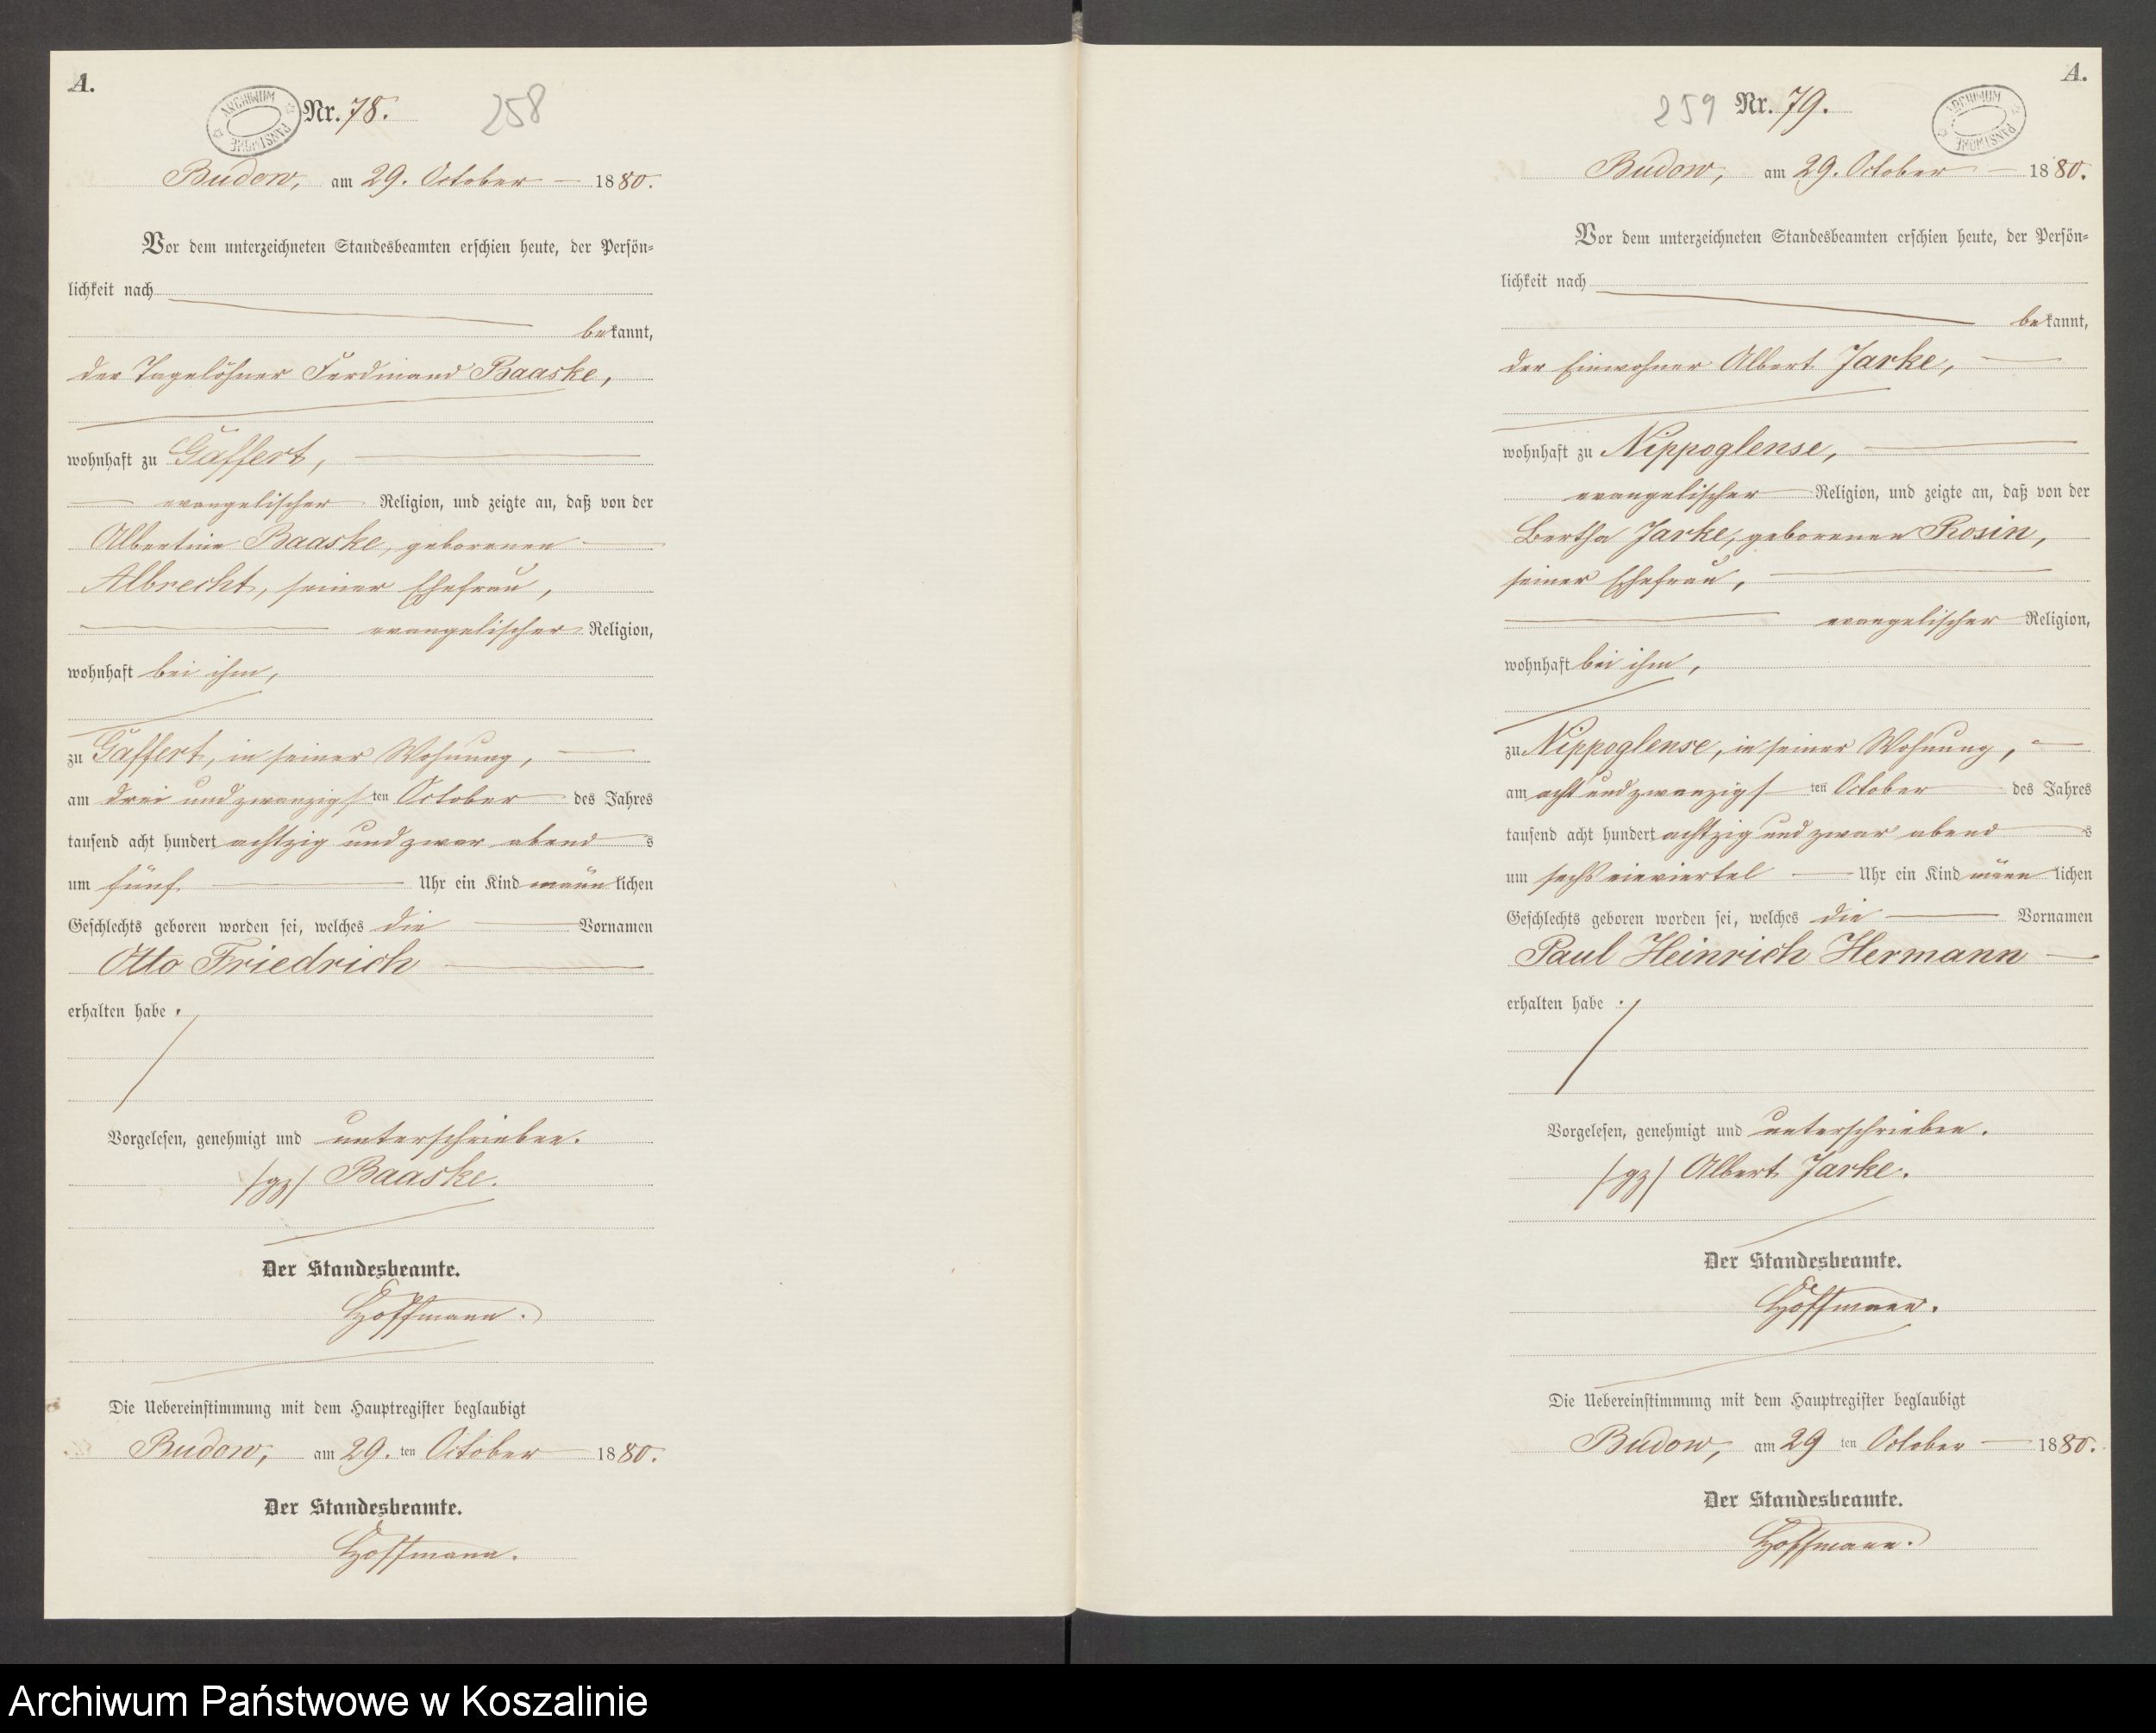 A.
ARCHIWUM PAŃSTWOWE
Nr. 78.
258
Budow, am 29. October 1880.
Vor dem unterzeichneten Standesbeamten erschien heute, der Persön-
lichkeit nach
bekannt,
der Tagelöhner Ferdinand Baaske,
wohnhaft zu Gaffert,
evangelischer Religion, und zeigte an, daß von der
Albertine Baaske, geborenen
Albrecht, seiner Ehefrau,
evangelischer Religion,
wohnhaft bei ihm,
zu Gaffert, in seiner Wohnung,
am drei und zwanzigsten October des Jahres
tausend acht hundert achtzig und zwar abends
um fünf Uhr ein Kind männlichen
Geschlechts geboren worden sei, welches die Vornamen
Otto Friedrich
erhalten habe.
Vorgelesen, genehmigt und unterschrieben.
/gz/ Baaske.
Der Standesbeamte.
Hoffmann.
Die Uebereinstimmung mit dem Hauptregister beglaubigt
Budow, am 29. ten October 1880.
Der Standesbeamte.
Hoffmann.
A.
259
Nr. 79.
ARCHIWUM PAŃSTWOWE
Budow, am 29. October 1880.
Vor dem unterzeichneten Standesbeamten erschien heute, der Persön-
lichkeit nach
bekannt,
der Einwohner Albert Jarke,
wohnhaft zu Nippoglense,
evangelischer Religion, und zeigte an, daß von der
Bertha Jarke, geborenen Rosin,
seiner Ehefrau,
evangelischer Religion,
wohnhaft bei ihm,
zu Nippoglense, in seiner Wohnung,
am acht und zwanzigsten October des Jahres
tausend acht hundert achtzig und zwar abends
um sechs einviertel Uhr ein Kind männlichen
Geschlechts geboren worden sei, welches die Vornamen
Paul Heinrich Hermann
erhalten habe.
Vorgelesen, genehmigt und unterschrieben.
/gz/ Albert Jarke.
Der Standesbeamte.
Hoffmann.
Die Uebereinstimmung mit dem Hauptregister beglaubigt
Budow, am 29 ten October 1880.
Der Standesbeamte.
Hoffmann.
Archiwum Państwowe w Koszalinie